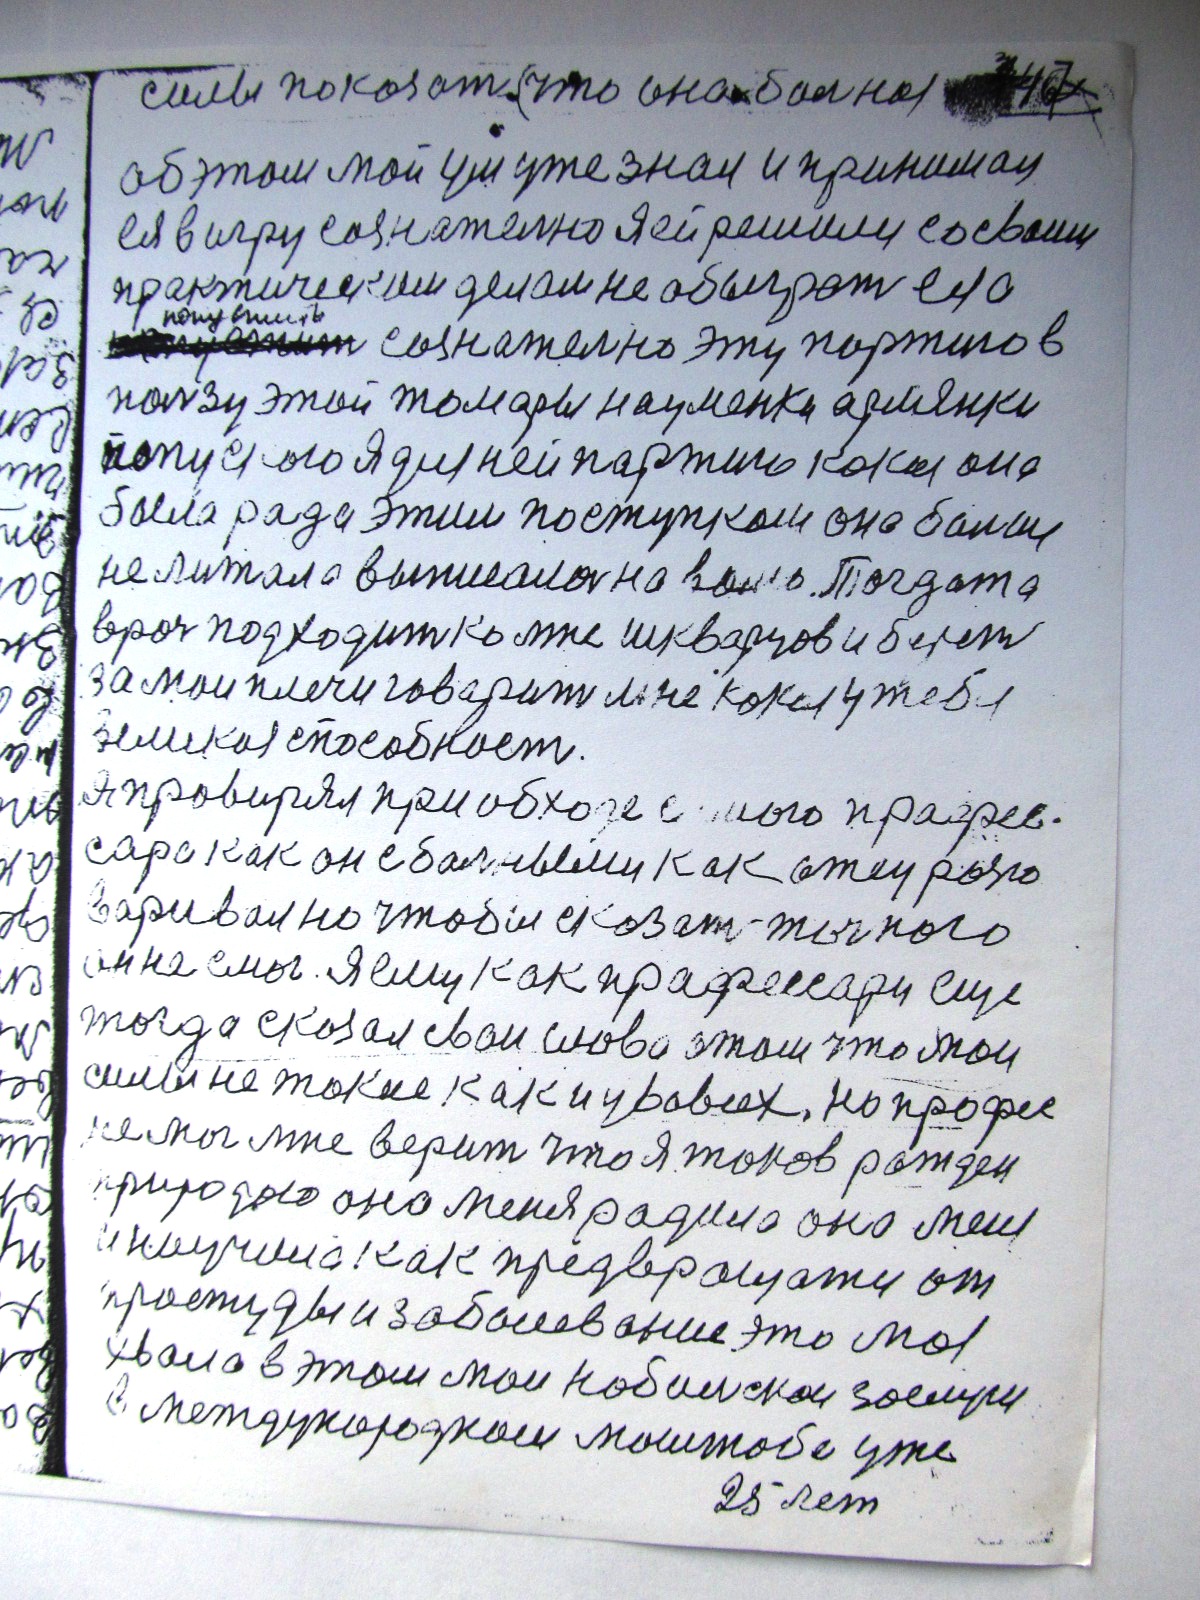 силы показат что она болная 467
об этом мой ум уже знал и принимал
ся в игру сознателно я ей решили со своим
практическим делом не обыграт ея а
попустить сознателно эту партию в
ползу этой томары науменки армянки
попускаю я для ней партию какая она
была рада этим поступком она болш
не читала выписалас на волю. Тогда та
врач подходит ко мне шкварцов и берет
за мои плечи говарит мне какая у тебя
великая способност.
Я проверял при обходе самого прафес-
сара как он с болными как отец разго
варивал но чтобы сказат точного
он не смог. Я ему как прафессару еще
тогда сказал свои слова этом что мои
силы не такие как и у вовсех. но професс
не мог мне верит что я таков рожден
природою она меня радила она меня
и научила как предвращати от
простуды и заболевание это моя
хвала в этом мои нобилскаи заслуги
в международном маштобе уже
25 лет